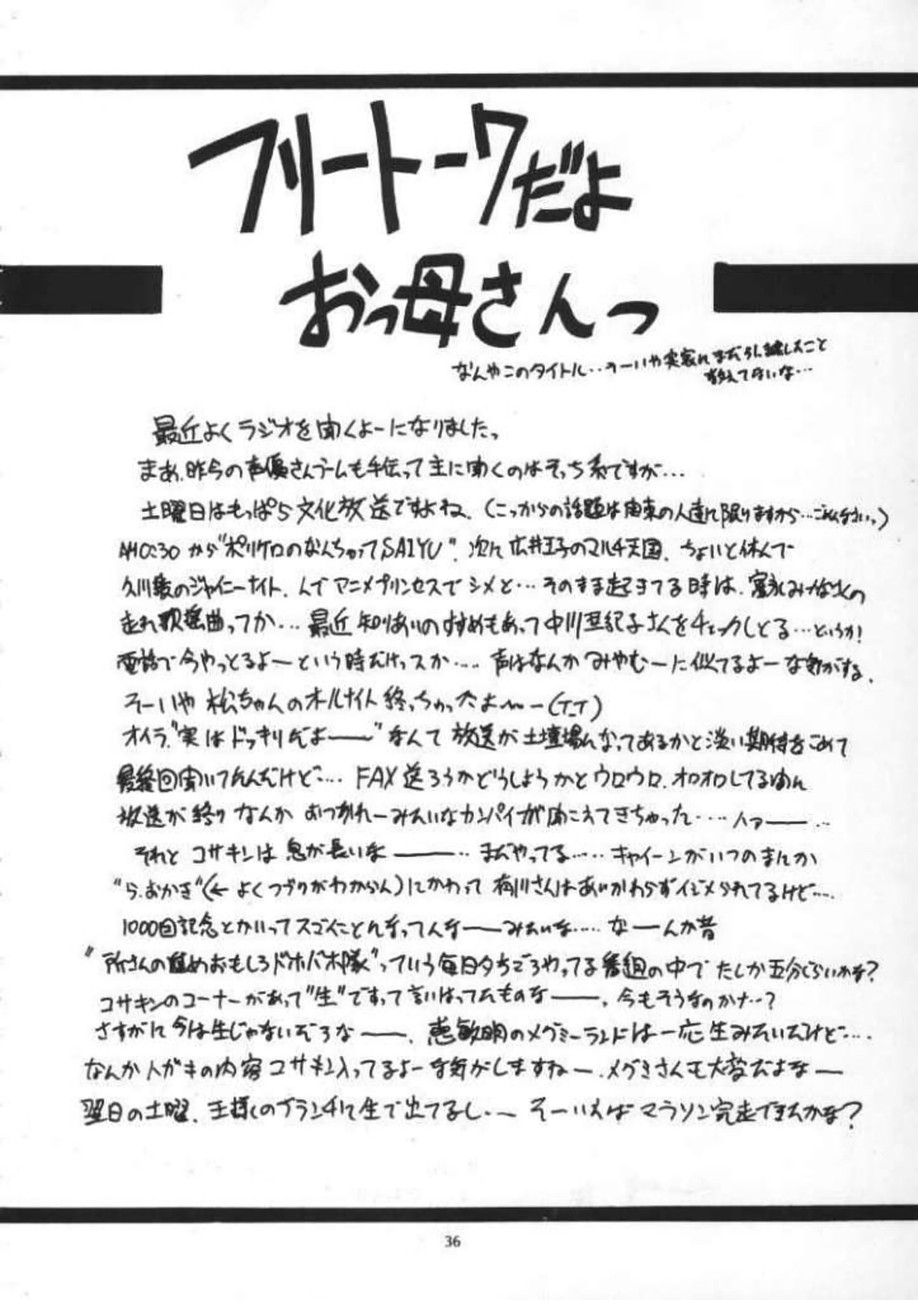 フリートークだよ
おっ母さんっ
なんやこのタイトル・・そーいや実家にまだ引っ越したこと
教えてないな…
最近よくラジオを聞くよーになりました。
まあ、昨今の声優さんブームも手伝って主に聞くのはそっち系ですが…
土曜日はもっぱら文化放送ですよね、(こっからの話題は関東の人達に限りますから…ごめんなさいっ)
AM0:30から"ポリケロのなんちゃってSAIYU"、次に広井王子のマルチ天国、ちょいと休んで
久川綾のシャイニーナイト、んでアニメプリンセスでシメと…そのまま起きてる時は、富永みーなさんの
走れ歌謡曲ってか…最近知りあいのすすめもあって中川亜紀子さんをチェックしとる…というか!
電話で今やっとるよーという時だけッスか……声はなんかみやむーに似てるよーな気がする。
そーいや松ちゃんのオールナイト終っちゃったよ〜ー(T-T)
オイラ、"実はドッキリだよ――"なんて放送が土壇場になってあるかと淡い期待をこめて
最終回聞いてたんだけど…FAX送ろうかどうしようかとウロウロ、オロオロしてる内に
放送が終りなんかおつかれーみたいなカンパイが聞こえてきちゃった……ハァ――…
それとコサキンは息が長いな――‥まだやってる……キャイーンがいつのまにか
"ら・おかき"(←よくつづりがわからん)にかわって有川さんはあいかわらずイジメられてるけど…‥
1000回記念とかいってスゴイことになってんなーーみたいな……なーんか昔
"所さんの進めおもしろドホバホ隊"っていう毎日夕ちごろやってる番組の中でたしか五分ぐらいかな?
コサキンのコーナーがあって"生"ですって言いはってたものな――、今もそうなのかナ…?
さすがに今は生じゃないだろな――、恵敏明のメグミーランドは一応生みたいだけど…‥
なんかハガキの内容コサキン入ってるよーな気がしますねー、メグミさんも大変だよなー
翌日の土曜、王様のブランチにて生で出てるし・〜 そーいえばマラソン完走できたかな?
36